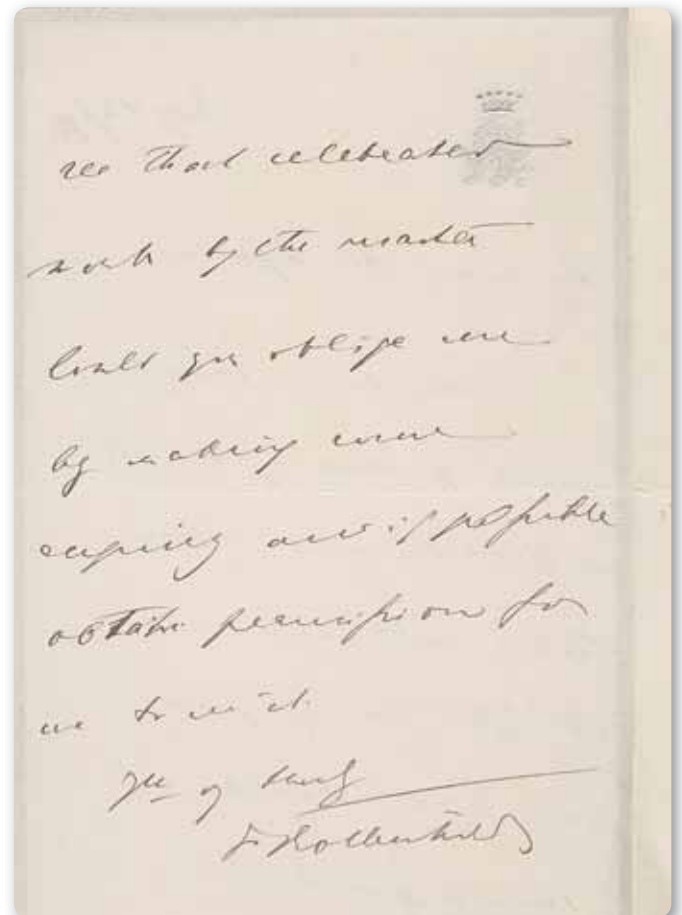 see that celebrated
work by the master
Could you oblige me
by making some
enquiry and if possible
obtain permission for
me to see it.
Yrs
F Rothschild